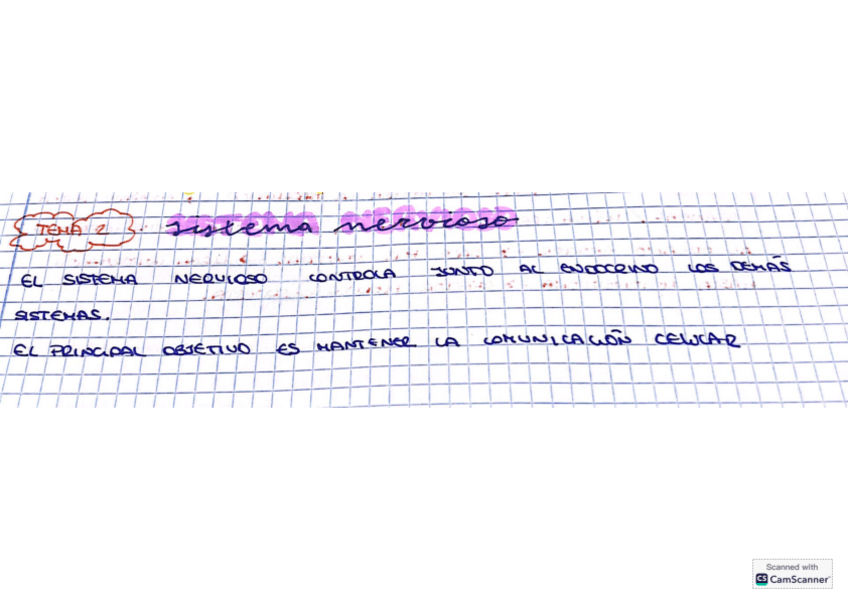 TEMA 2 sistema nervioso
EL SISTEMA NERVIOSO CONTROLA JUNTO AL ENDOCRINO LOS DEMÁS
SISTEMAS.
EL PRINCIPAL OBJETIVO ES MANTENER LA COMUNICACIÓN CELULAR
Scanned with
CS CamScanner